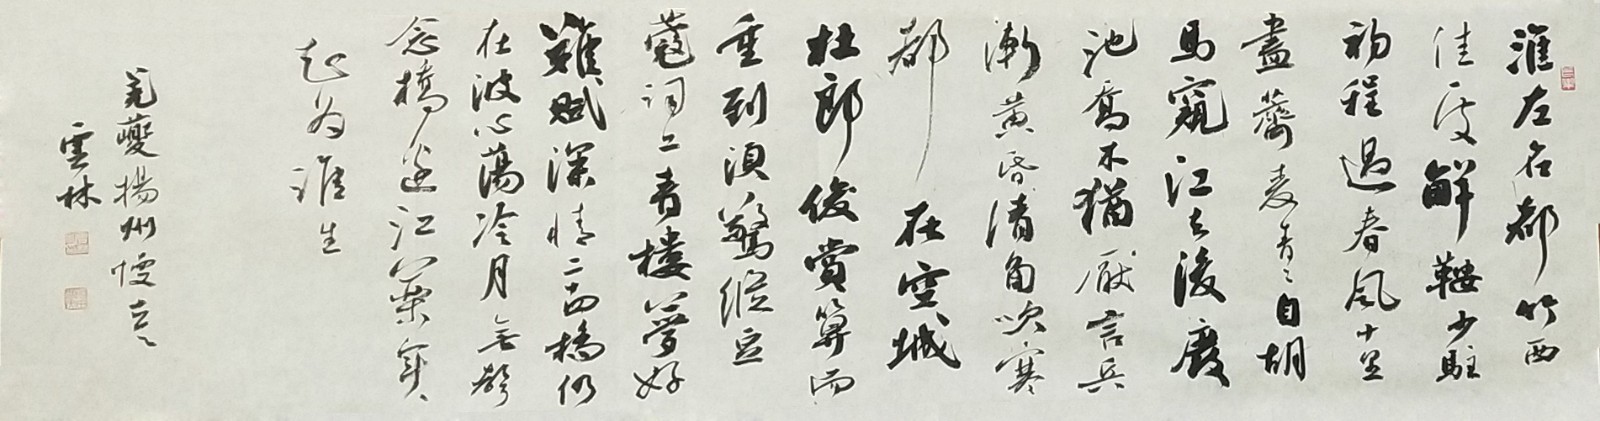 淮左名都竹西
佳處解鞍少駐
初程過春風十里
盡薺麥青〻自胡
馬窺江去後廢
池喬木猶厭言兵
漸黃昏清角吹寒
都在空城
杜郎俊賞算而
重到須驚縱豆
蔻詞工青樓夢好
難賦深情二十四橋仍
在波心蕩冷月無聲
念橋邊紅藥年〻
知為誰生
姜夔揚州慢
雲林